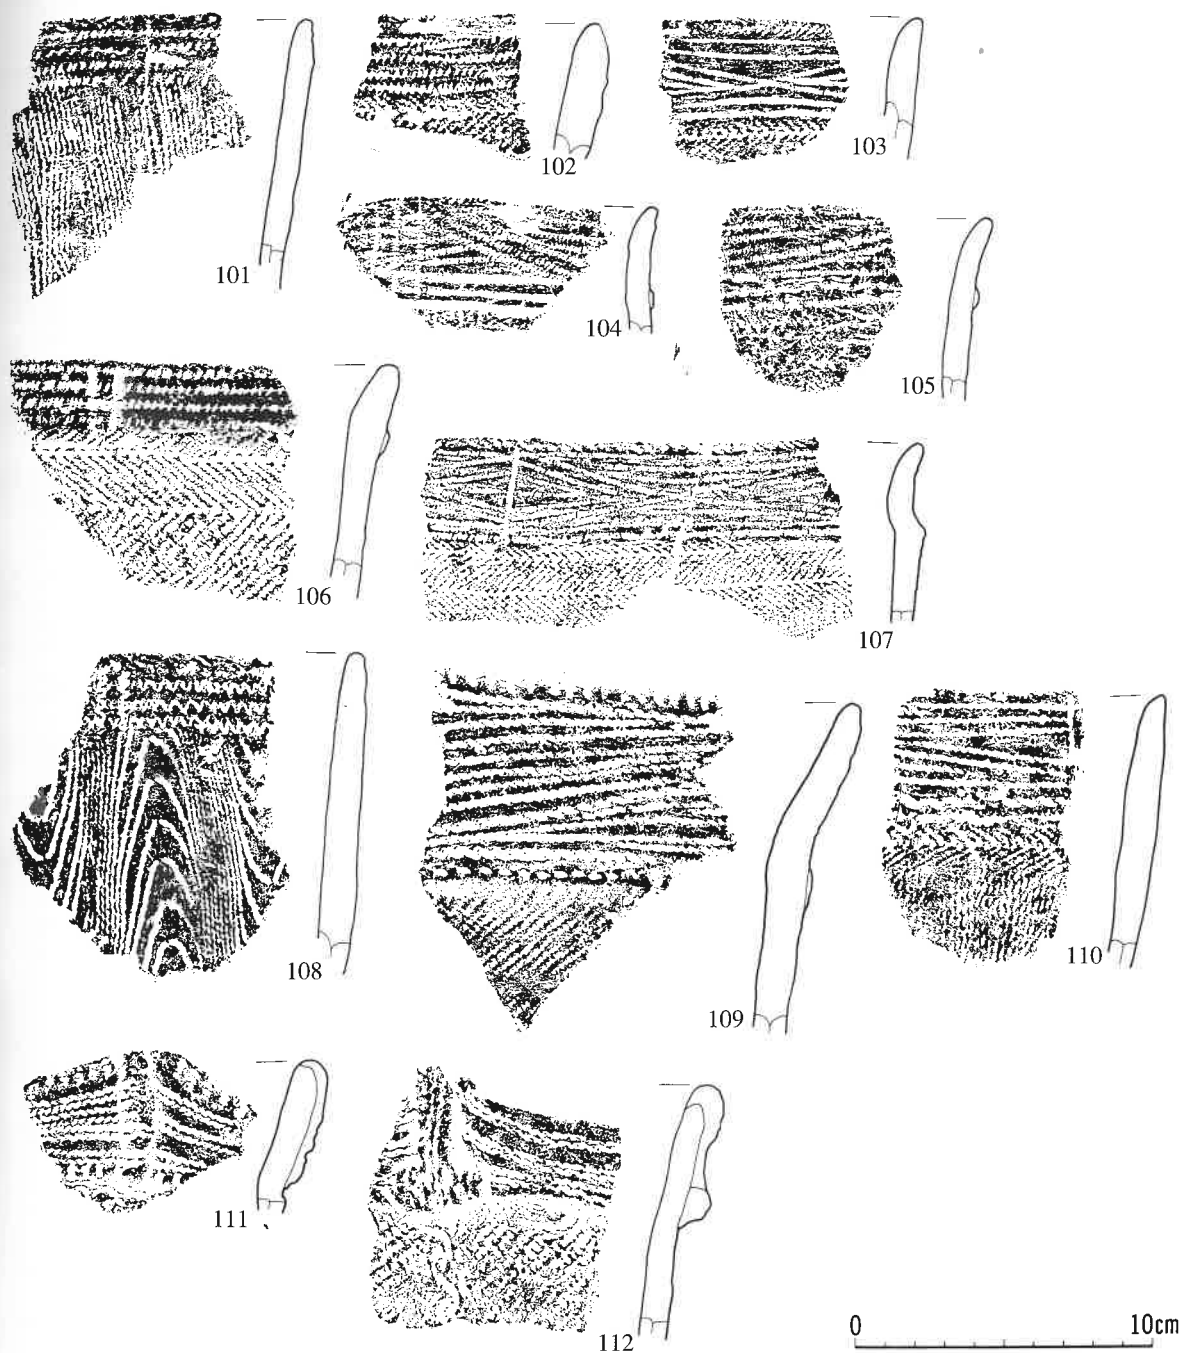 101
102
103
104
105
106
107
108
109
110
111
112
0 10cm